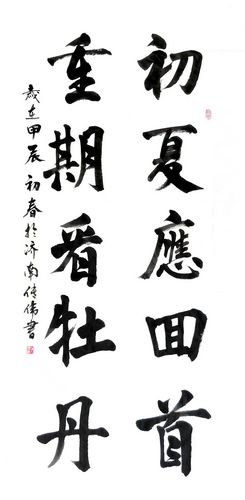 初夏應回首
重期看牡丹
歲在甲辰初春於济南传伟書